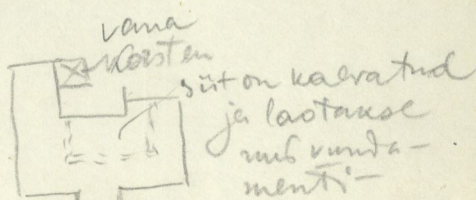 vana
korsten
siit on kaevatud
ja laotakse
uus vunda-
menti-